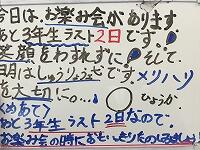 今日は、お楽しみ会があります
あと3年生ラスト2日です。
笑顔をわすれずに!そして、
明日はしゅうりょうしきです メリハリ
を大切に…
ひょうが
〈めあて〉
あと3年生ラスト2日なので
お楽しみ会の時におもいっきりたのしみましょう!